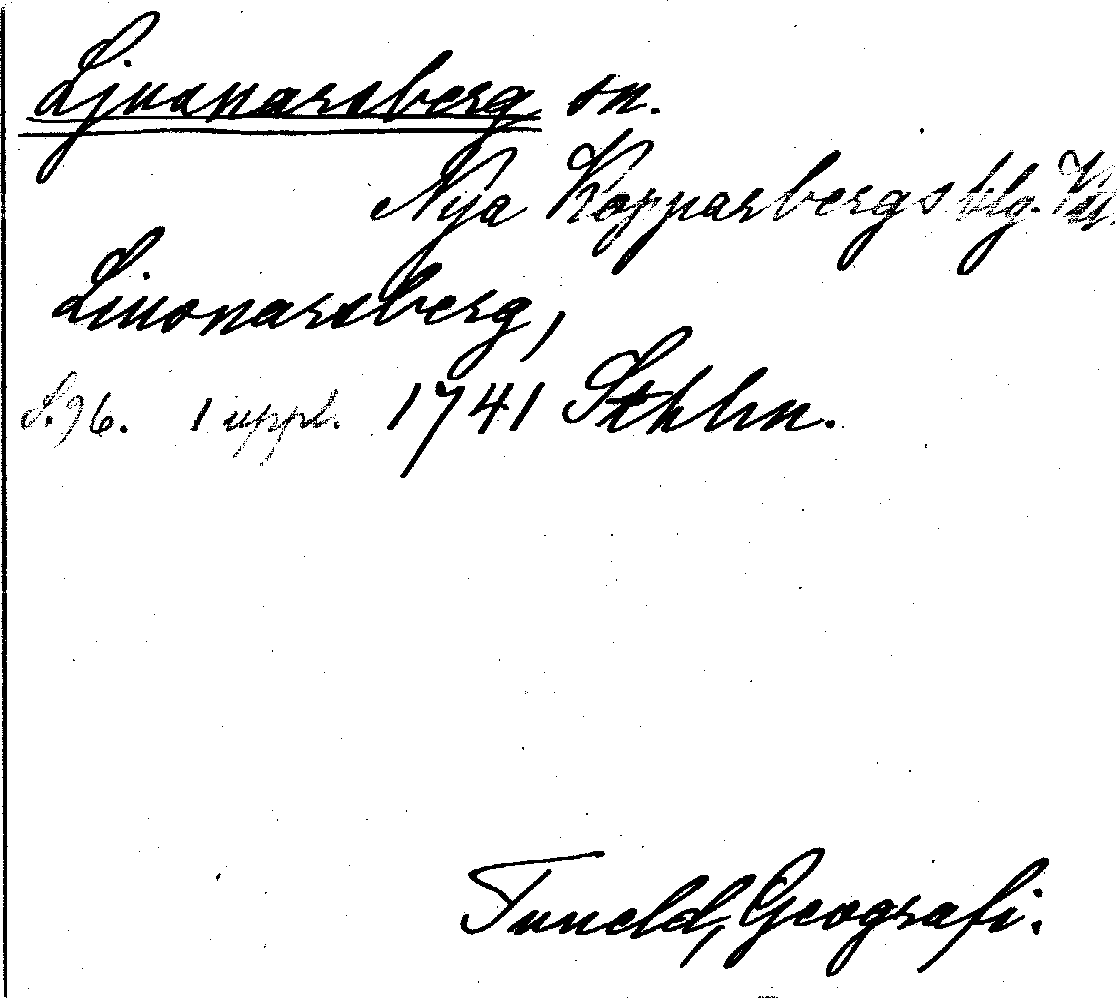 Ljusnarsberg sn.
Nya Kopparbergs blg.
Liusnarsberg,
S. 96. 1 uppl. 1741 Sthlm.
Tuneld, Geografi.